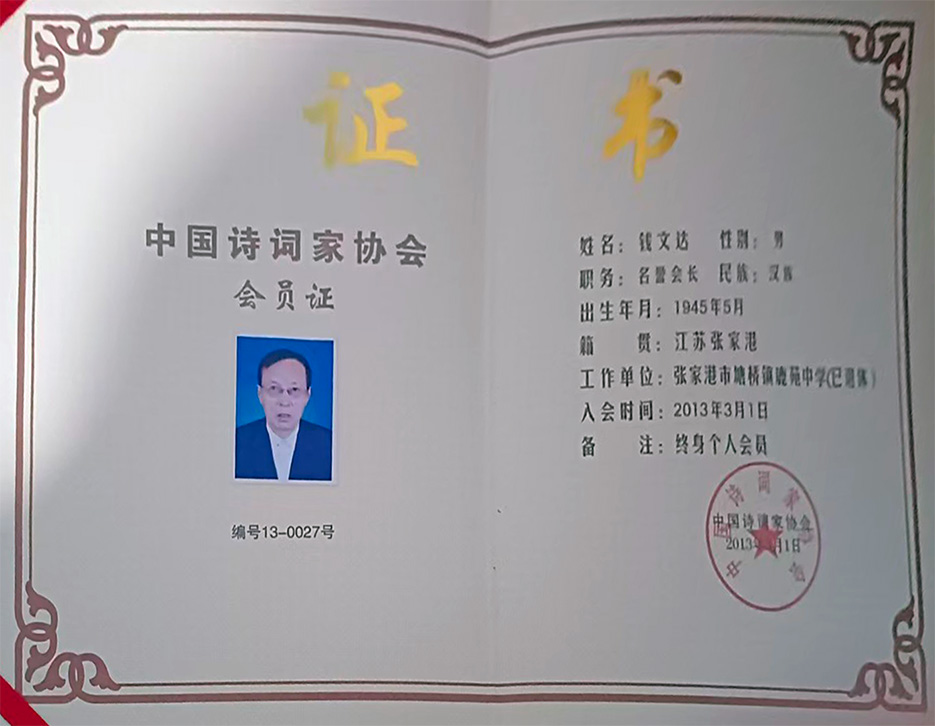 证书
中国诗词家协会
会员证
编号13-0027号
姓名：钱文达 性别：男
职务：名誉会长 民族：汉族
出生年月：1945年5月
籍贯：江苏张家港
工作单位：张家港市塘桥镇鹿苑中学(已退休)
入会时间：2013年3月1日
备注：终身个人会员
中国诗词家协会
中国诗词家协会
2013年3月1日